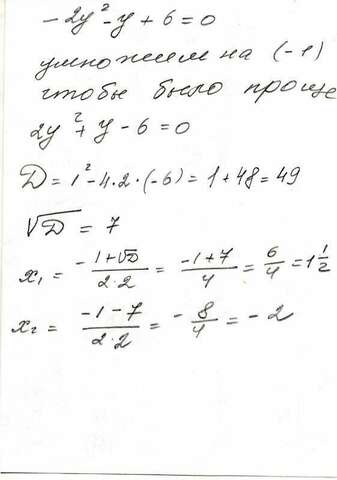 -2y²-y+6=0
умножим на (-1)
чтобы было проще
2y²+y-6=0
D=1²-4·2·(-6)=1+48=49
√D=7
x₁=(-1+√D)/(2·2)=(-1+7)/4=6/4=1 1/2
x₂=(-1-7)/(2·2)=-8/4=-2